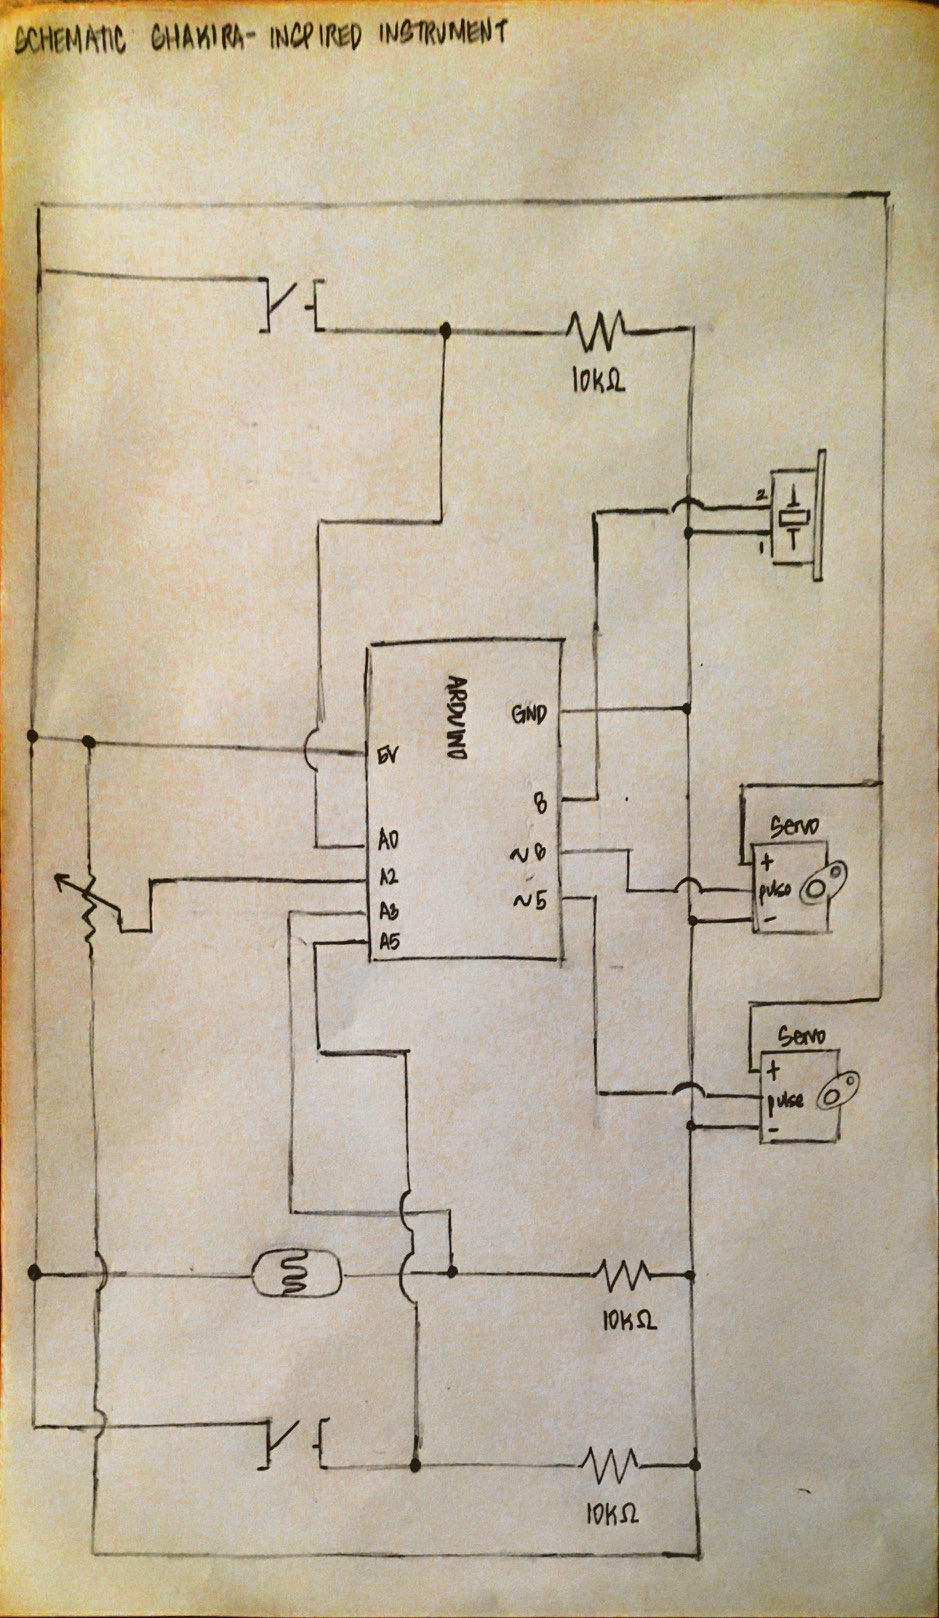 SCHEMATIC SHAKIRA- INSPIRED INSTRUMENT
10KΩ
2
1
ARDUINO
GND
5V
8
A0
~6
A2
~5
A3
A5
Servo
+
pulse
-
Servo
+
pulse
-
10KΩ
10KΩ